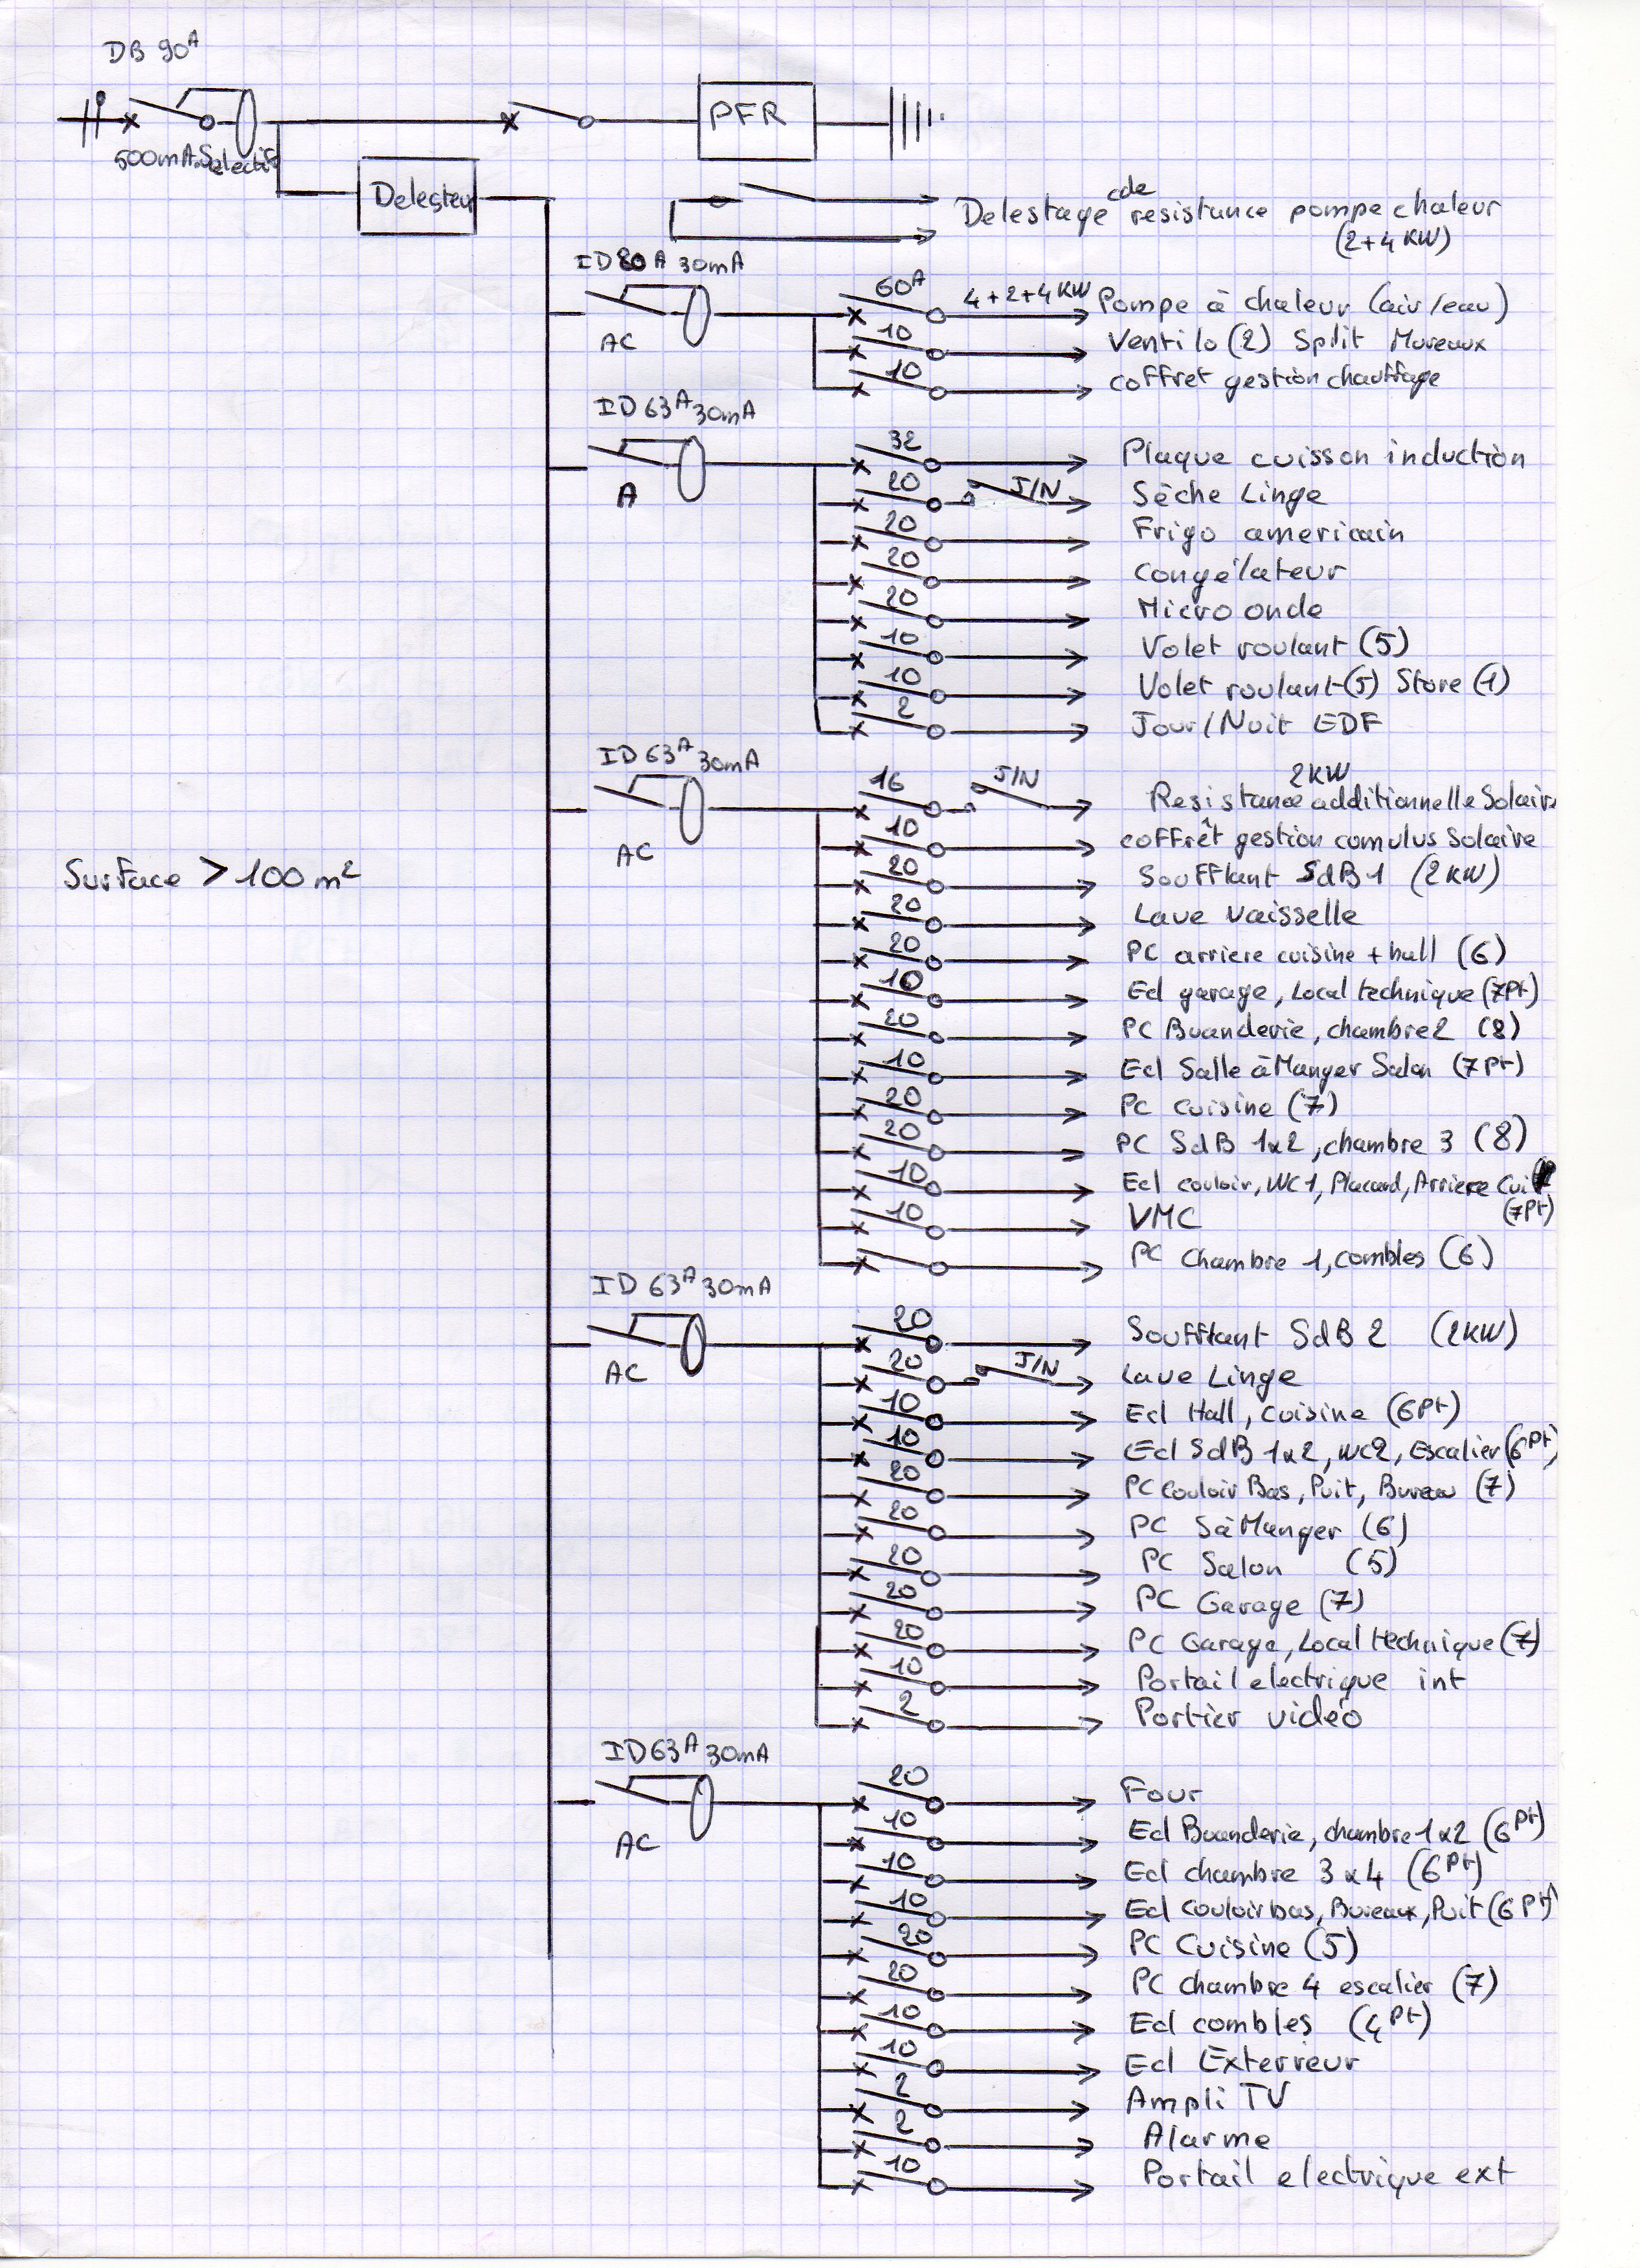 DB 90A
500mA Selectif
PFR
Delesteur
cde
Delestage resistance pompe chaleur
(2+4 KW)
ID 80A 30mA
AC
60A 4+2+4KW Pompe à chaleur (air/eau)
10 Ventilo (2) Split Mureaux
10 coffret gestion chauffage
ID 63A 30mA
A
32 Plaque cuisson induction
20 J/N Sèche Linge
20 Frigo americain
20 Congélateur
20 Micro onde
10 Volet roulant (5)
10 Volet roulant (5) Store (1)
2 Jour/Nuit EDF
ID 63A 30mA
AC
2KW
16 J/N Resistance additionnelle Solaire
10 coffrêt gestion cumulus Solaire
Surface > 100 m2
20 Soufflant SdB 1 (2KW)
20 Lave Vaisselle
20 PC arriere cuisine + hall (6)
10 Ecl garage, Local technique (7Pt)
20 PC Buanderie, chambre 2 (8)
10 Ecl Salle à Manger Salon (7Pt)
20 PC cuisine (7)
20 PC SdB 1x2, chambre 3 (8)
10 Ecl couloir, WC1, Placard, Arriere Cui
(7Pt)
10 VMC
PC Chambre 1, combles (6)
ID 63A 30mA
AC
20 Soufflant SdB 2 (2KW)
20 J/N Lave Linge
10 Ecl Hall, cuisine (6Pt)
10 Ecl SdB 1x2, WC2, Escalier (6Pt)
20 PC couloir Bas, Puit, Bureau (7)
20 PC Sà Manger (6)
20 PC Salon (5)
20 PC Garage (7)
20 PC Garage, Local technique (7)
10 Portail electrique int
2 Portier vidéo
ID 63A 30mA
AC
20 Four
10 Ecl Buanderie, chambre 1x2 (6Pt)
10 Ecl chambre 3x4 (6Pt)
10 Ecl couloir bas, Bureaux, Puit (6Pt)
20 PC Cuisine (5)
20 PC chambre 4 escalier (7)
10 Ecl combles (4Pt)
10 Ecl Exterieur
2 Ampli TV
2 Alarme
10 Portail electrique ext